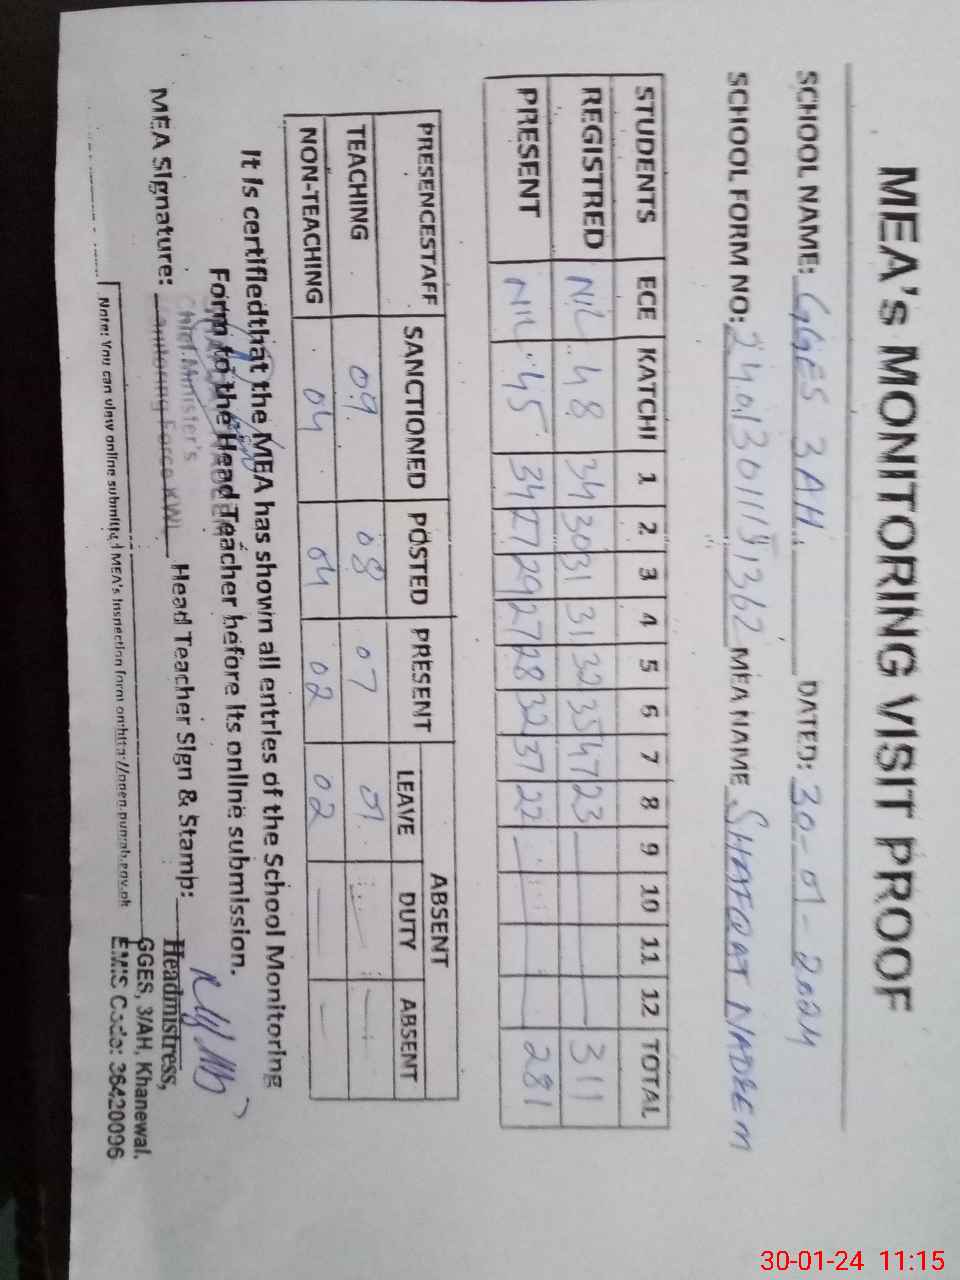 MEA's MONITORING VISIT PROOF
SCHOOL NAME: GGES 3AH. DATED: 30-01-2024
SCHOOL FORM NO: MEA NAME SHAFQAT NADEEM
STUDENTS ECE KATCHI 1 2 3 4 5 6 7 8 9 10 11 12 TOTAL
REGISTRED NIL 48 34 30 31 31 32 35 47 23 — — — — 311
PRESENT NIL 45 34 27 29 27 28 32 37 22 — — — — 281
PRESENCESTAFF SANCTIONED POSTED PRESENT ABSENT
LEAVE DUTY ABSENT
TEACHING 09 08 07 01 — —
NON-TEACHING 04 04 02 02 — —
It is certifiedthat the MEA has shown all entries of the School Monitoring
Form to the Head Teacher before its online submission.
MEA Signature: Head Teacher Sign & Stamp:
Chief Minister's
Monitoring Force KWL
Headmistress,
GGES, 3/AH, Khanewal.
EMIS Code: 36420096
Note: You can view online submitted MEA's Inspection form on:http://open.punjab.gov.pk
30-01-24 11:15